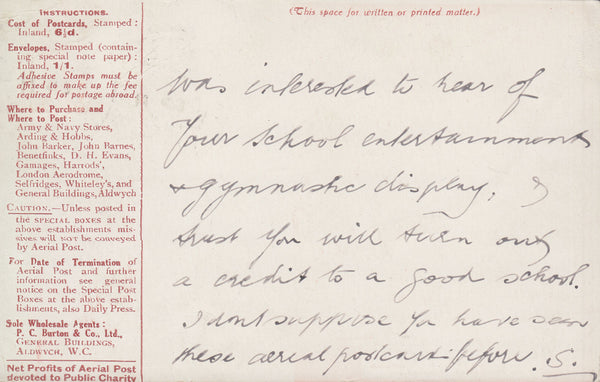 INSTRUCTIONS.
Cost of Postcards, Stamped:
Inland, 6½d.
Envelopes, Stamped (contain-
ing special note paper):
Inland, 1/1.
Adhesive Stamps must be
affixed to make up the fee
required for postage abroad.
Where to Purchase and
Where to Post:
Army & Navy Stores,
Arding & Hobbs,
John Barker, John Barnes,
Benetfinks, D. H. Evans,
Gamages, Harrods',
London Aerodrome,
Selfridges, Whiteley's, and
General Buildings, Aldwych
CAUTION.—Unless posted in
the SPECIAL BOXES at the
above establishments mis-
sives will NOT be conveyed
by Aerial Post.
For Date of Termination of
Aerial Post and further
information see general
notice on the Special Post
Boxes at the above estab-
lishments, also Daily Press.
Sole Wholesale Agents:
P. C. Burton & Co., Ltd.,
GENERAL BUILDINGS,
ALDWYCH, W.C.
Net Profits of Aerial Post
devoted to Public Charity
(This space for written or printed matter.)
Was interested to hear of
Your School entertainment
& gymnastic display. I
trust You will turn out
a credit to a good school.
I dont suppose You have seen
these aerial postcards before. S.